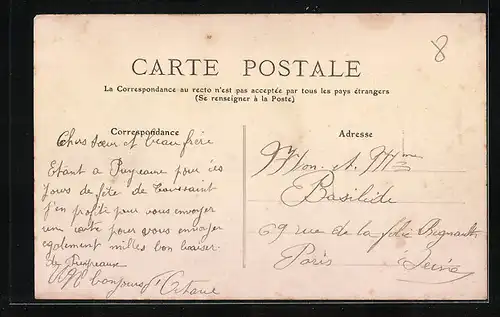 8
CARTE POSTALE
La Correspondance au recto n'est pas acceptée par tous les pays étrangers
(Se renseigner à la Poste)
Correspondance
Adresse
Chers sœur et beau frère
Etant a pour ces
jours de fête de Toussaint
j'en profite pour vous envoyer
une carte pour vous envoyer
egalement milles bon baiser
de
bonjour d'Octave
Mon. et Mme
Basilide
69 rue de la folie Regnault
Paris Seine